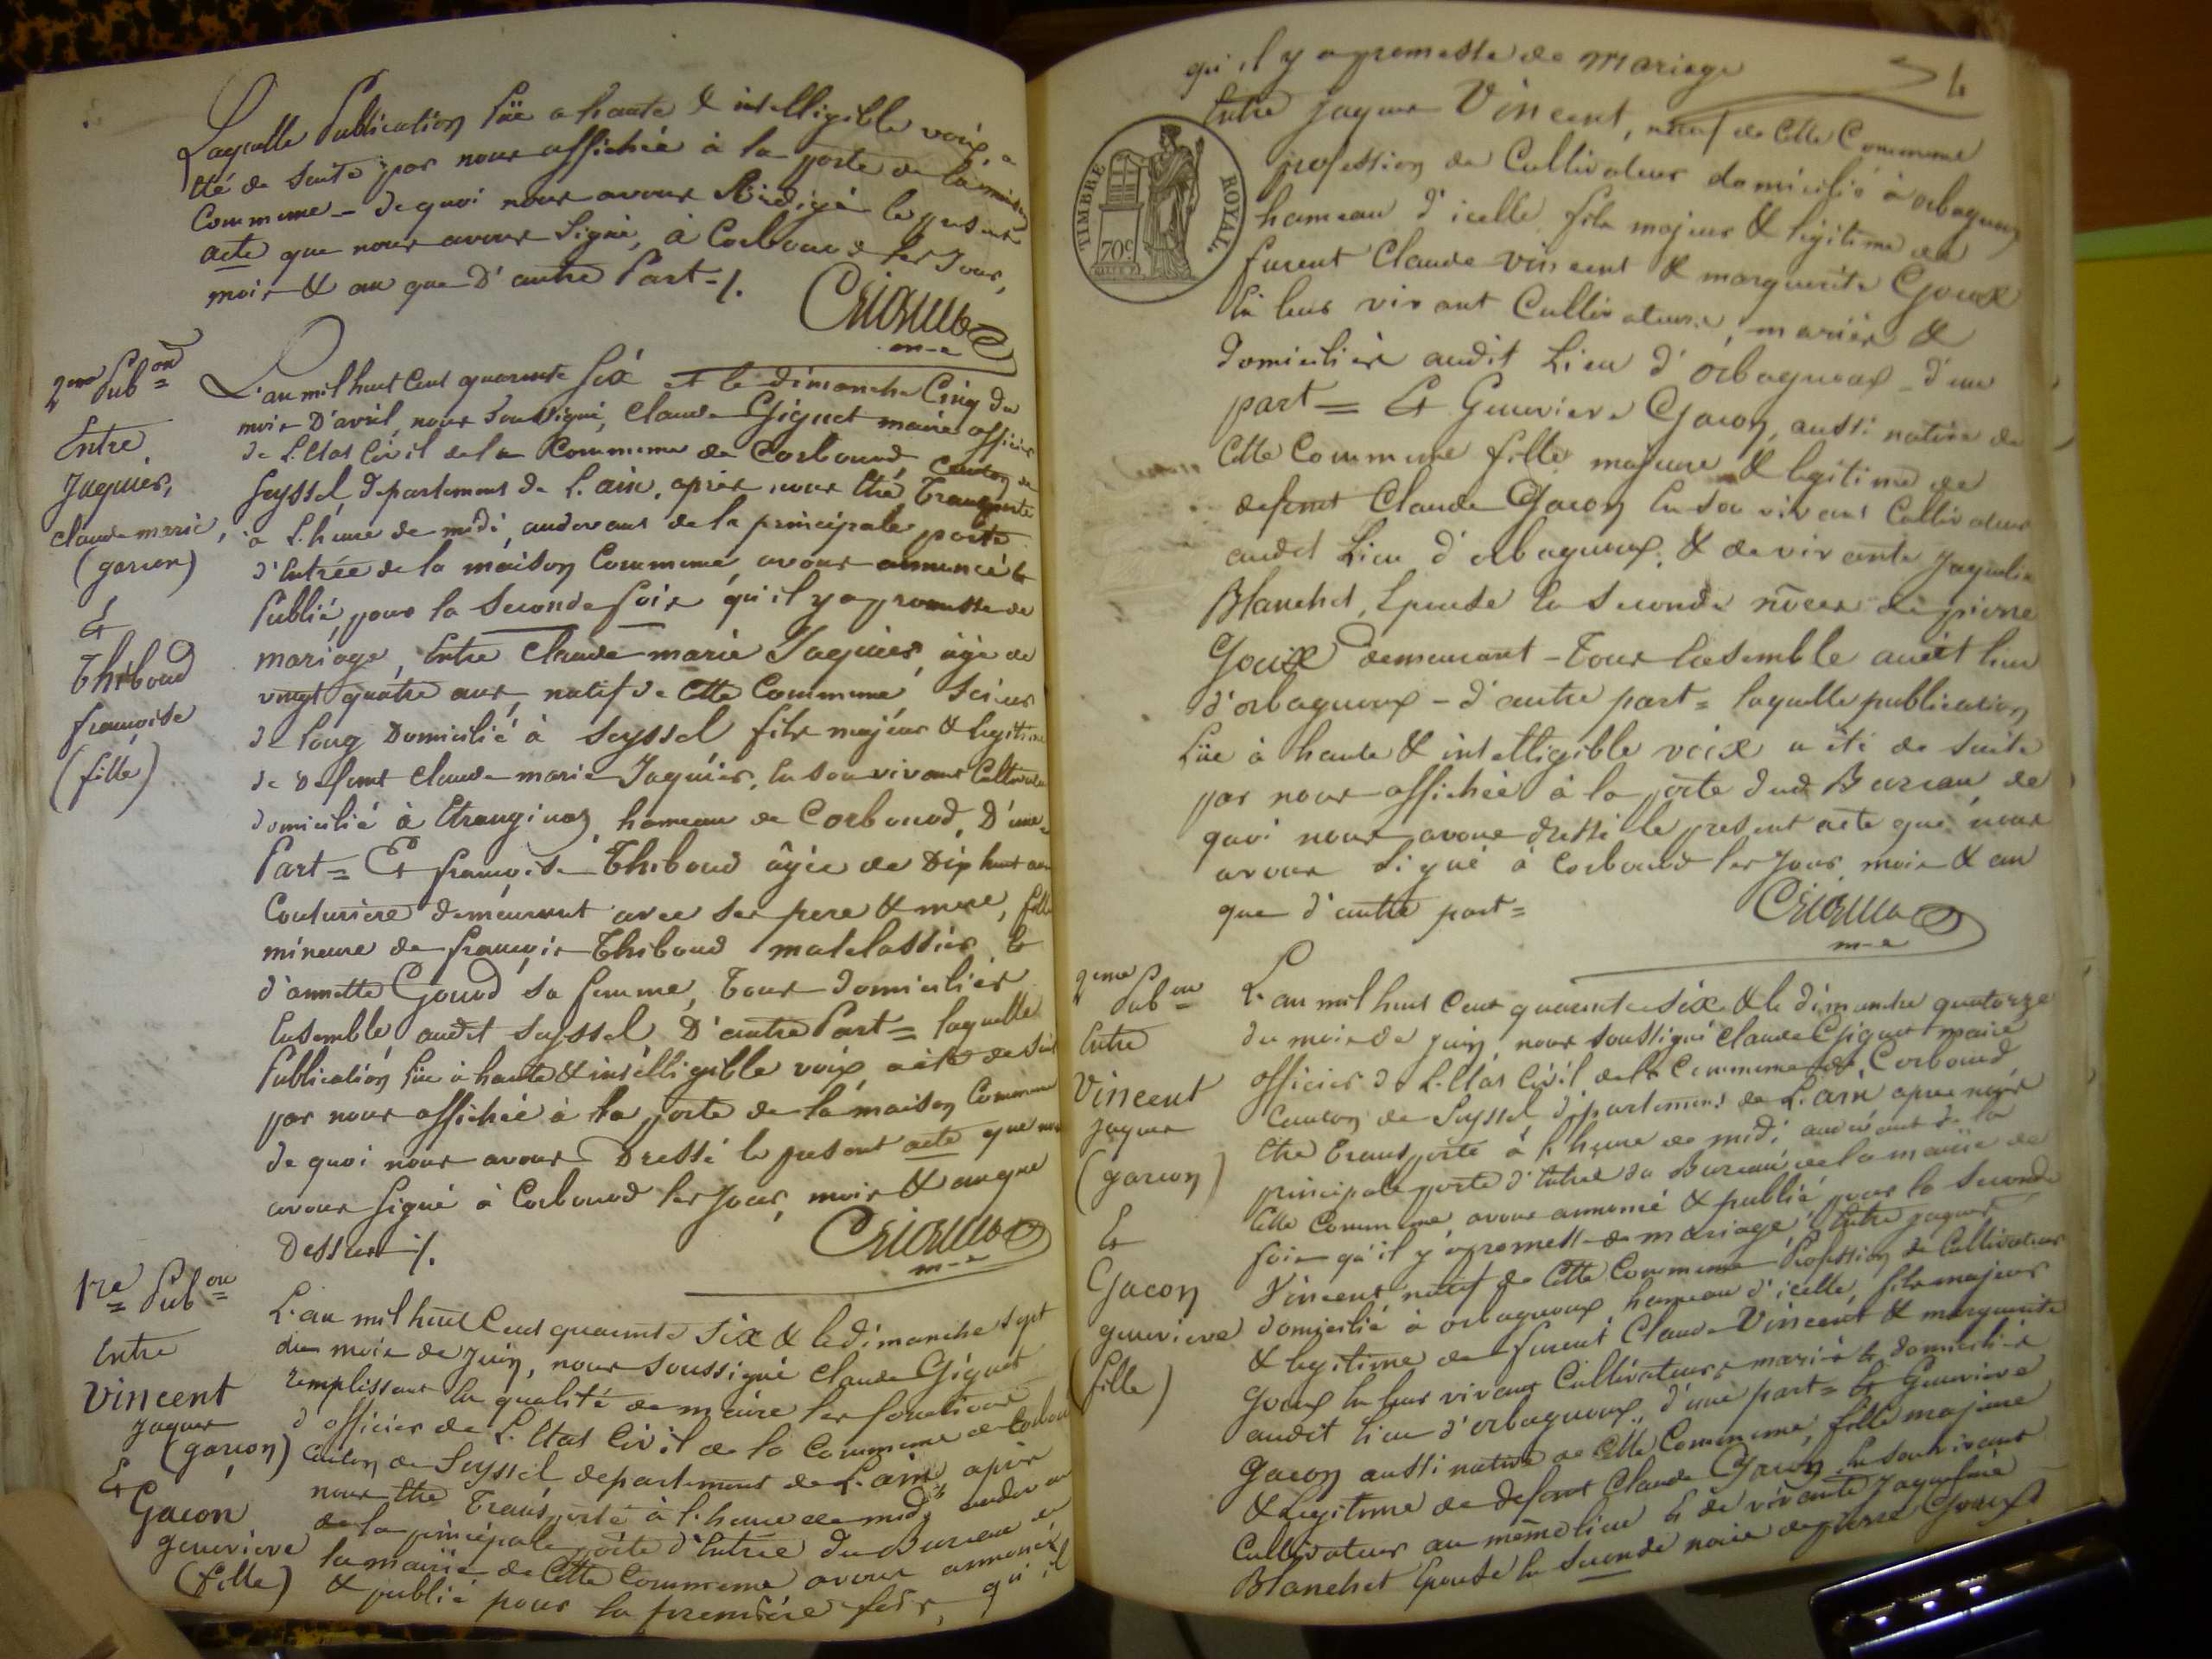 Laquelle Publication lüe a haute & intelligible voix, a
été de suite par nous affichée à la porte de la maison
Commune - de quoi nous avons Rédigé le present
acte que nous avons Signé, à Corbonod les Jour,
mois & an que D'autre Part -/.
m-e
2eme Pubon
Entre
Jaquier,
claude marie,
(garcon)
Et
Thiboud
françoise
(fille)
L'an mil huit Cent quarente Six et le dimanche Cinq du
mois D'avril, nous Soussigné, Claude Gignet maire officier
de L'Etat Civil de la Commune de Corbonod, Canton de
Seyssel, departement de L'ain, après nous être Transporté
a L'heure de midi, audevant de la principale porte
d'Entrée de la maison Commune, avons annoncé &
Publié, pour la Seconde fois qu'il y a promesse de
mariage, Entre Claude marie Jaquier, âgé de
vingt quatre ans, natif de Cette Commune, Scieur
de Long Domicilié à Seyssel fils majeur & legitime
de defunt Claude marie Jaquier, En son vivant Cultivateur
domicilié à Etranginaz, hameau de Corbonod, D'une
Part = Et françoise Thiboud âgée de Dix huit ans
Couturiere demeurant avec ses pere & mere, fille
mineure de françois Thiboud matelassier, &
d'annette Gonod sa femme, Tous domiciliés
Ensemble audit Seyssel, D'autre Part = laquelle
Publication lüe à haute & intélligible voix a été de suite
par nous affichée à la porte de la maison Commune
de quoi nous avons Dressé le present acte que nous
avons signé à Corbonod les Jour, mois & an que
Dessus -/.
m-e
1re Pubon
Entre
Vincent
Jaques
(garcon)
Et
Gacon
genevieve
(fille)
L'an mil huit Cent quarente Six & le dimanche Sept
du mois de Juin, nous Soussigné Claude Gignet
remplissant En qualité de maire les fonctions
d'officier de L'Etat Civil de la Commune de Corbonod
Canton de Seyssel departement de L'ain, après
nous être Transporté à l'heure de midi audevant
de la principale porte d'Entrée du Bureau de
la mairie de Cette Commune avons annoncé
& publié pour la premiére fois, qu'il
4
qu'il y a promesse de Mariage
Entre Jaques Vincent, natif de Cette Commune
profession de Cultivateur domicilié à orbagnoux
hameau d'icelle, fils majeur & légitime de
furent Claude Vincent & marguerite Goux
En leur vivant Cultivateurs, mariés &
domiciliés audit Lieu d'orbagnoux - d'une
part = Et Genevieve Gacon, aussi native de
Cette Commune fille majeure & legitime de
defunt Claude Gacon En son vivant Cultivateur
audit Lieu d'orbagnoux, & de vivante Jaqueline
Blanchet, Epouse En Seconde nôces de pierre
Goux demeurant - Tous Ensemble audit lieu
d'orbagnoux - d'autre part = laquelle publication
Lüe à haute & intelligible voix a été de suite
par nous affichée à la porte dud. Bureau, de
quoi nous avons dressé le present acte que nous
avons signé à Corbonod les Jour, mois & an
que d'autre part =
m-e
TIMBRE ROYAL
70c
2eme Pubon
Entre
Vincent
Jaques
(garcon)
Et
Gacon
genevieve
(fille)
L'an mil huit Cent quarente Six & le dimanche quatorze
du mois de Juin, nous soussigné Claude Gignet maire
officier de L'Etat Civil de la Commune de Corbonod
Canton de Seyssel, département de L'ain après nous
être transporté à l'heure de midi audevant de la
principale porte d'Entrée du Bureau de la mairie de
Cette Commune, avons annoncé & publié pour la Seconde
fois qu'il y a promesse de mariage, Entre Jaques
Vincent natif de Cette Commune Profession de Cultivateur
domicilié à orbagnoux, hameau d'icelle, fils majeur
& legitime de furent Claude Vincent & marguerite
Goux En leur vivant Cultivateurs mariés & domiciliés
audit lieu d'orbagnoux, d'une part = Et Genevieve
Gacon aussi native de Cette Commune, fille majeure
& Legitime de defunt Claude Gacon En son vivant
Cultivateur au même lieu & de vivante Jaqueline
Blanchet Epouse En Seconde noces de pierre Goux